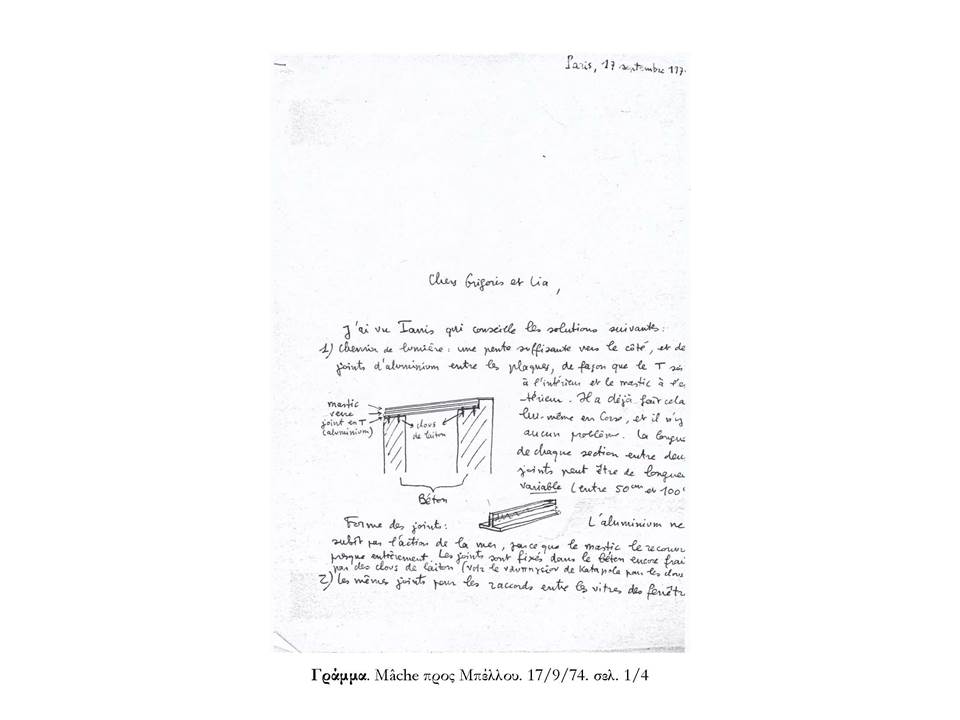 Paris, 17 septembre 197
Chers Grigoris et Lia,
J'ai vu Iannis qui conseille les solutions suivantes :
1) Chemin de lumière : une pente suffisante vers le côté, et de
joints d'aluminium entre les plaques, de façon que le T soi
à l'intérieur et le mastic à l'ex
-térieur. Il a déjà fait cela
lui-même en Corse, et il n'y
aucun problème. La longue
de chaque section entre deux
joints peut être de longueu
variable (entre 50cm et 100c
mastic
verre
joint en T
(aluminium)
clous
de laiton
Béton
Forme des joints :
L'aluminium ne
subit pas l'action de la mer, parce que le mastic le recouvr
presque entièrement. Les joints sont fixés dans le béton encore frai
par des clous de laiton (voir le ναυπηγείον de Katapola pour les clous
2) Les mêmes joints pour les raccords entre les vitres des fenêtr
Γράμμα. Mâche προς Μπέλλου. 17/9/74. σελ. 1/4